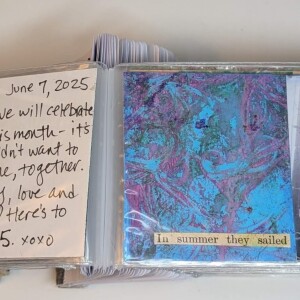 June 7, 2025
we will celebrate
is month - it's
dn't want to
e, together.
, love and
Here's to
5. xoxo
In summer they sailed